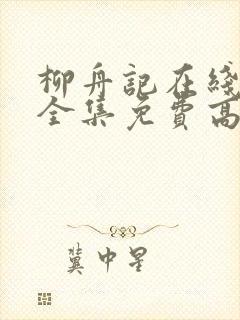 柳舟記在綫
全集免費高
冀中星